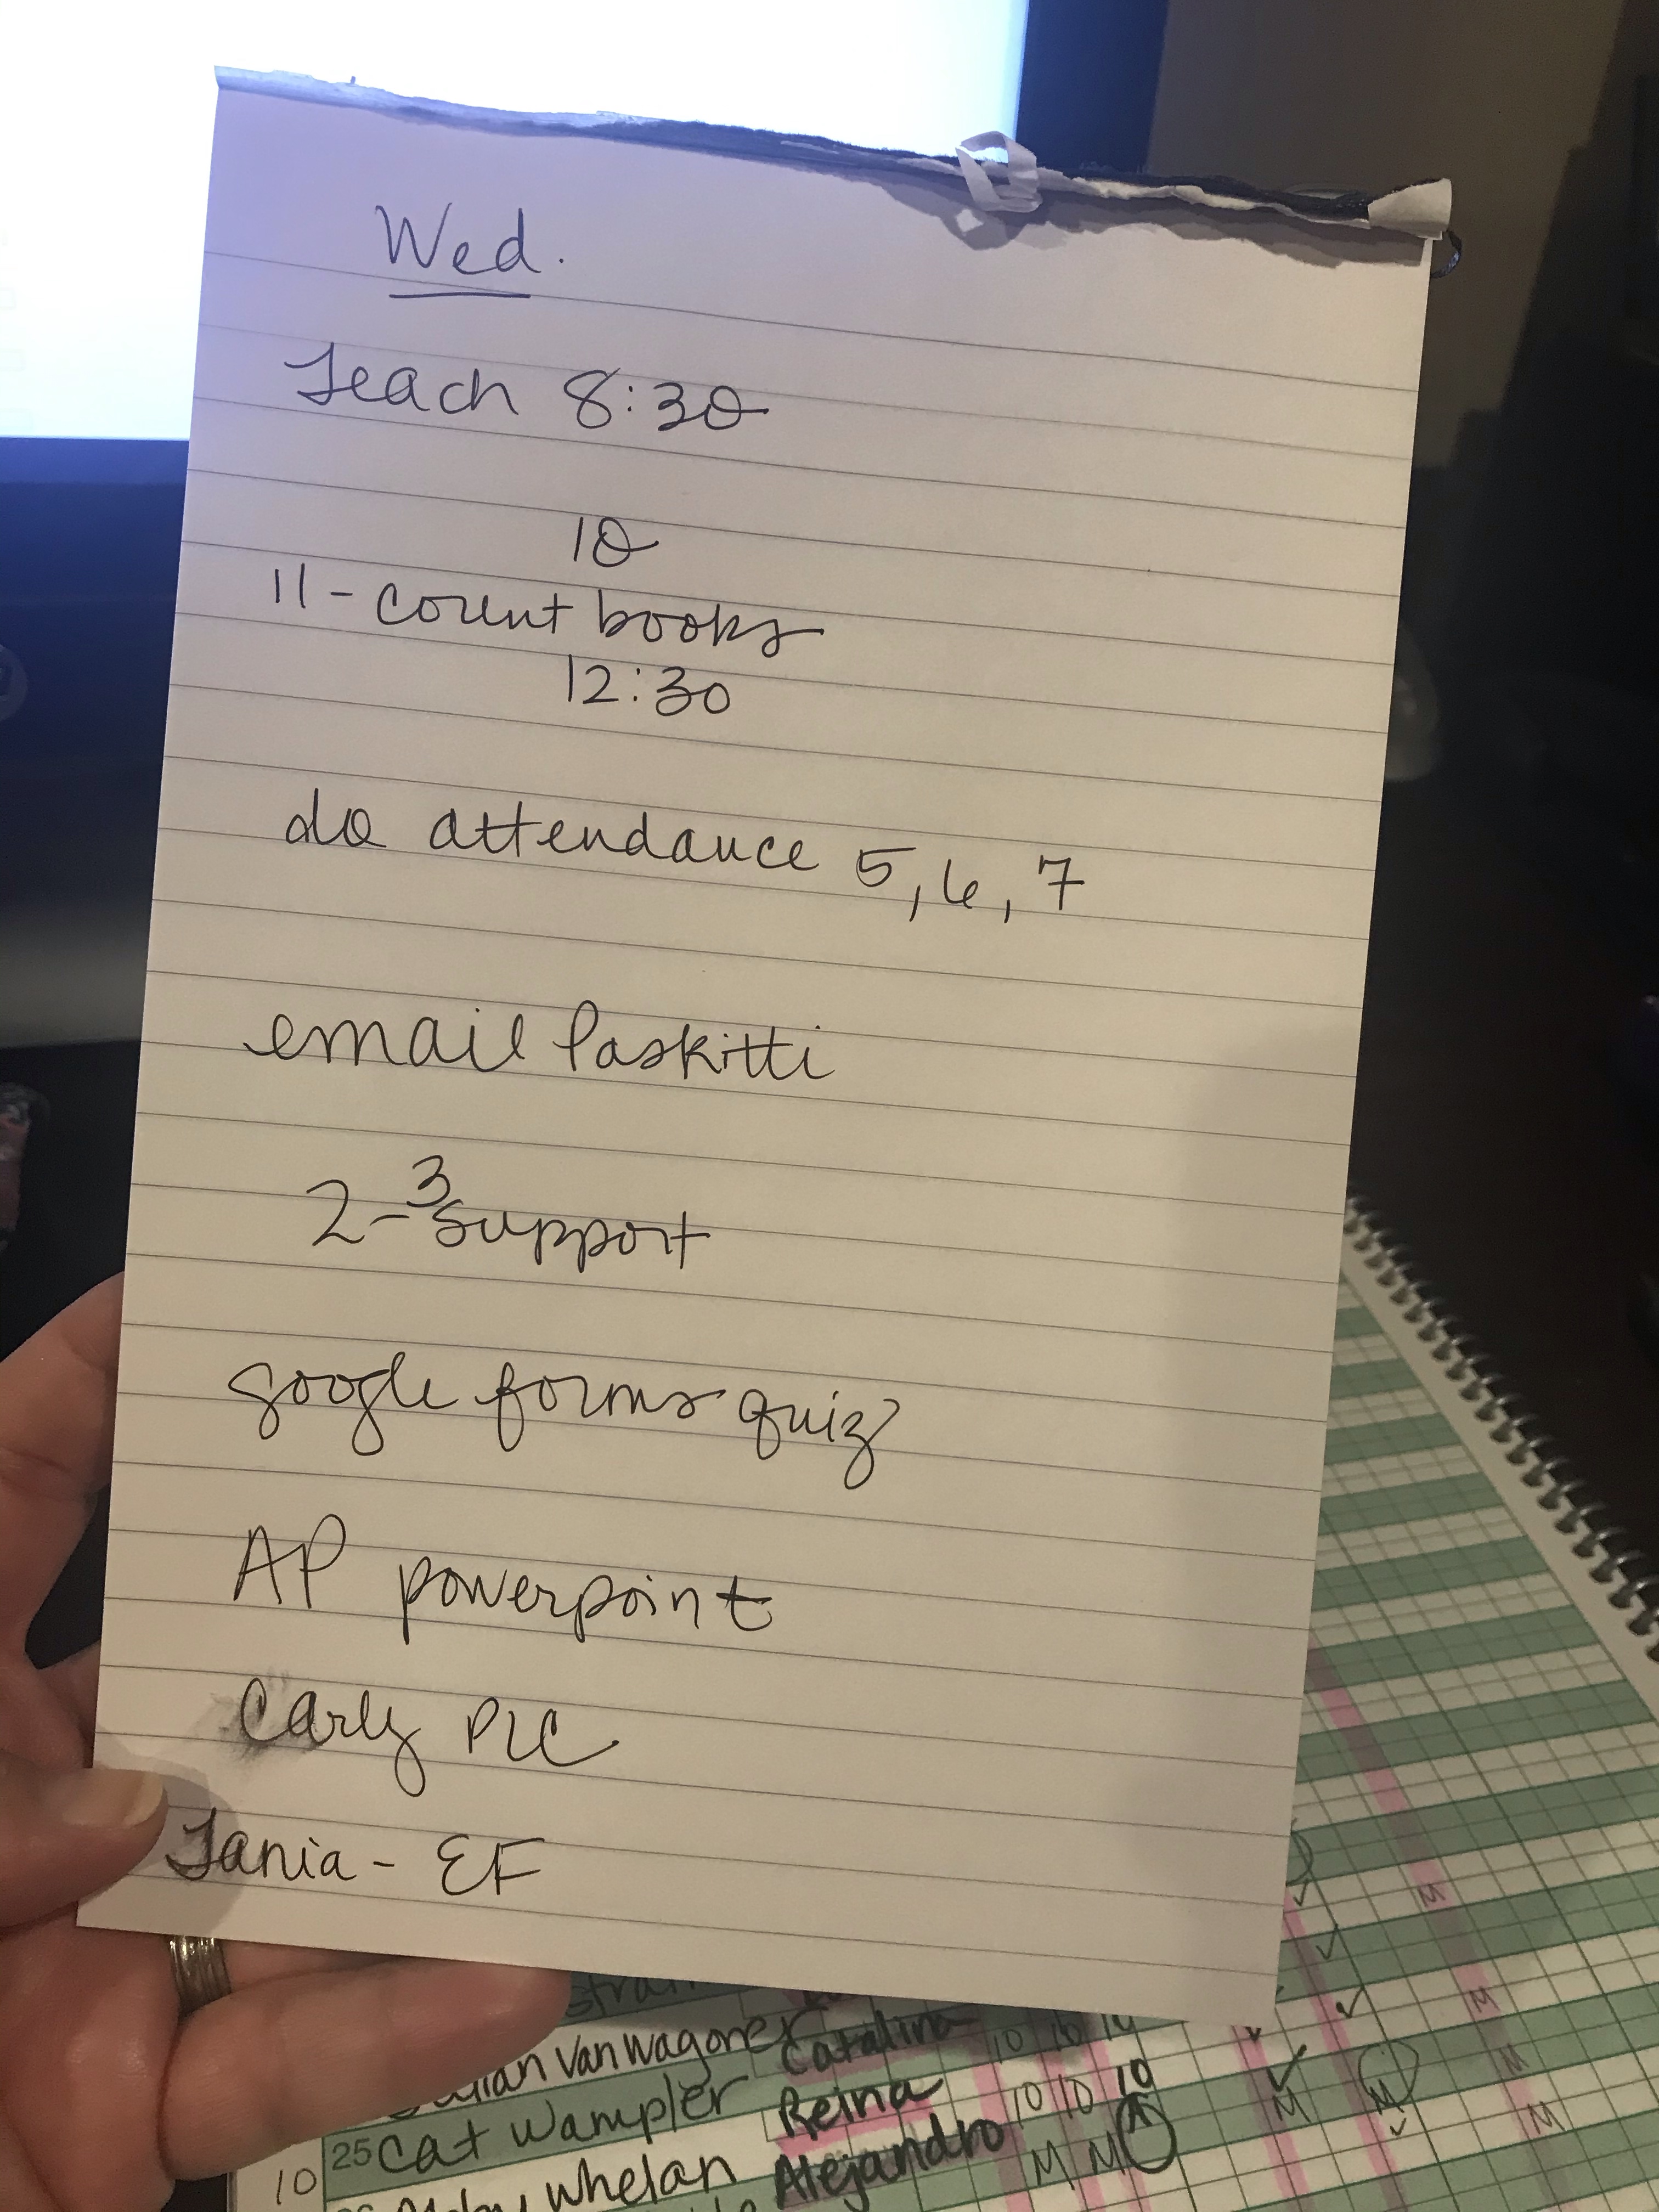 Wed.
Teach 8:30
10
11 - count books
12:30
do attendance 5, 6, 7
email Paskitti
2-3 support
google forms quiz
AP powerpoint
Carly PLC
Tania - EF
Van Wagoner Catalina 10 10
25 Cat Wampler Reina 10 10 10
10 Whelan Alejandro M M
M
M
M
M
M
M